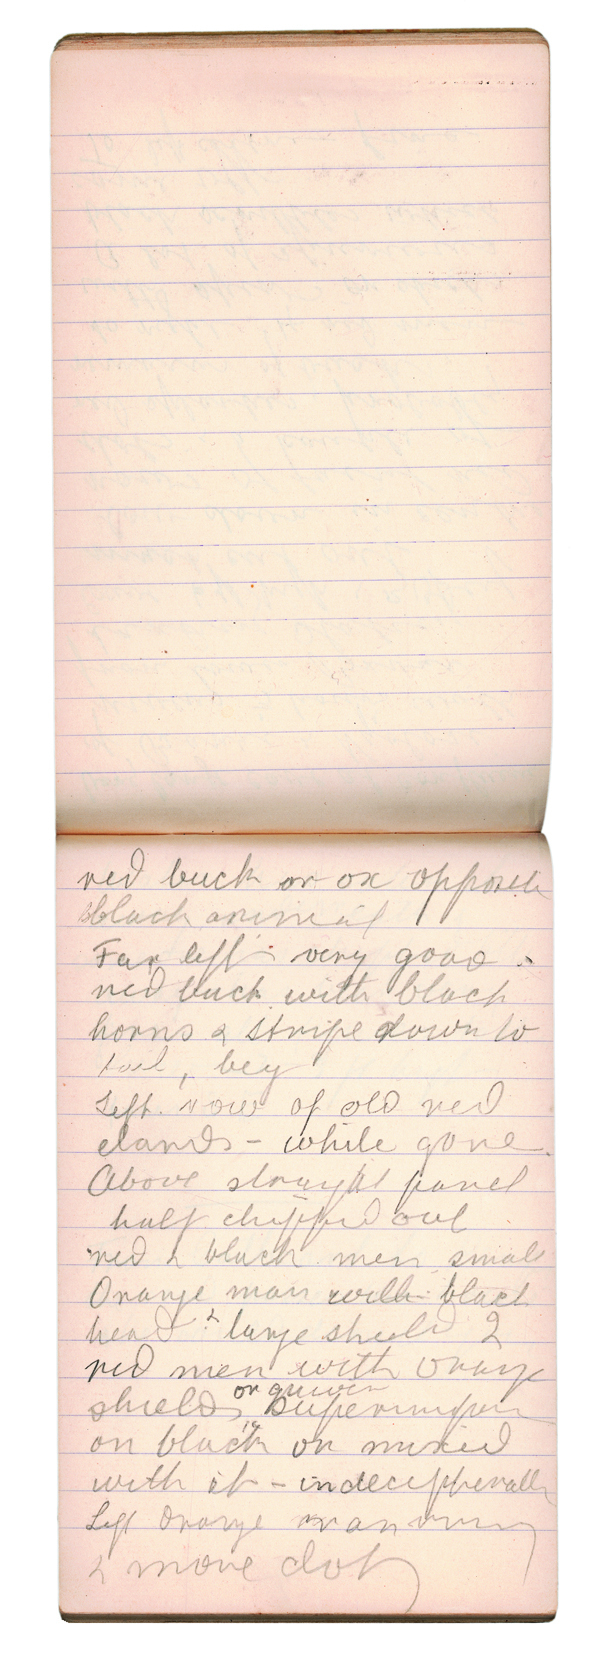 red buck or ox opposite
black animal
Far left very good.
red buck with black
horns & stripe down to
tail,
Left row of old red
elands - while gone.
Above straight panel
half chipped out
red & black men small
Orange man with black
head & large shield 2
red men with orange
shields, or quiver
on black or mixed
with it -
Left orange man
& more